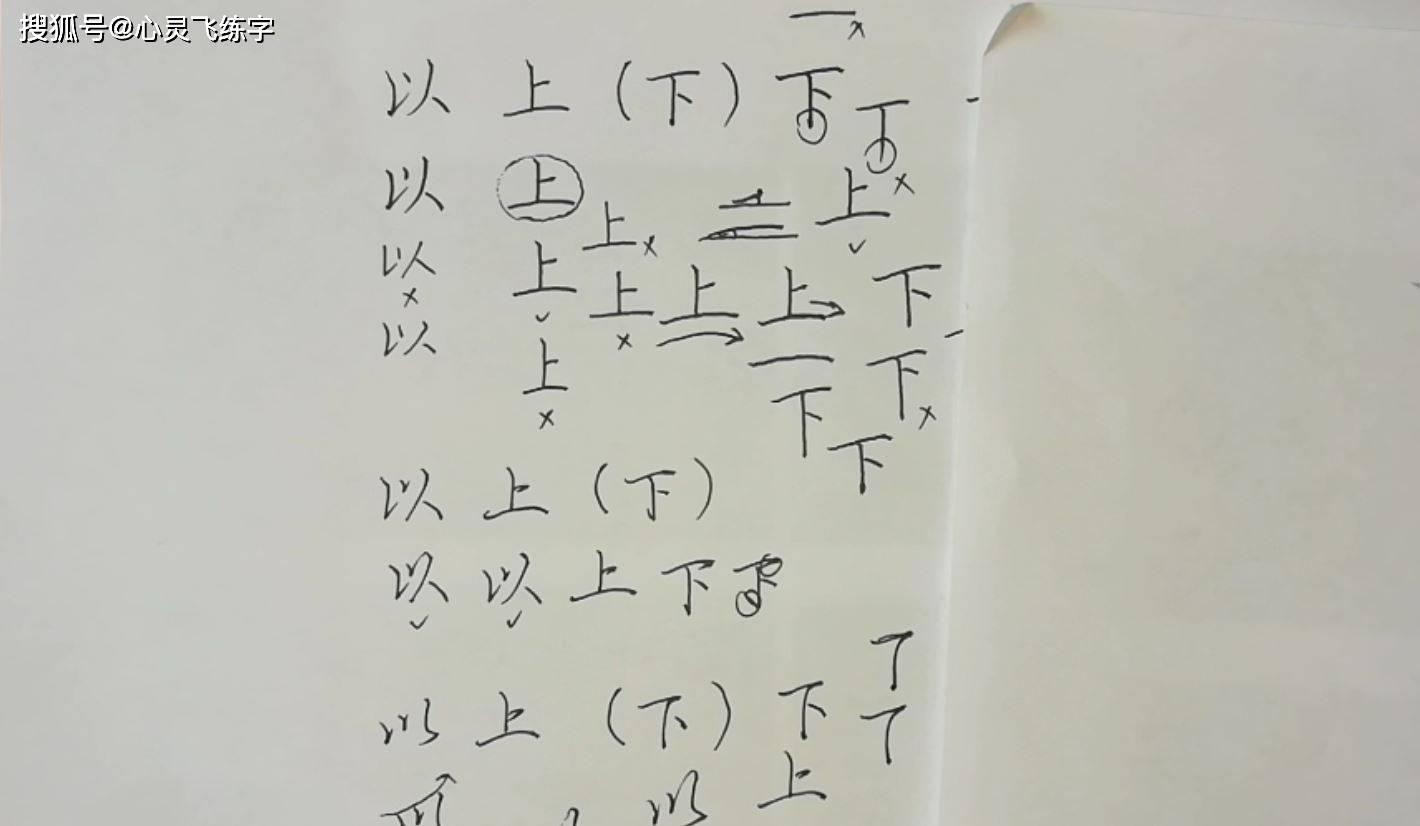 搜狐号@心灵飞练字
以 上（下）下
以 上 上 上
以 上 上 上 上 下
以 上 下 下
下
以 上（下）
以 以 上 下 下
以 上（下）下
以 上